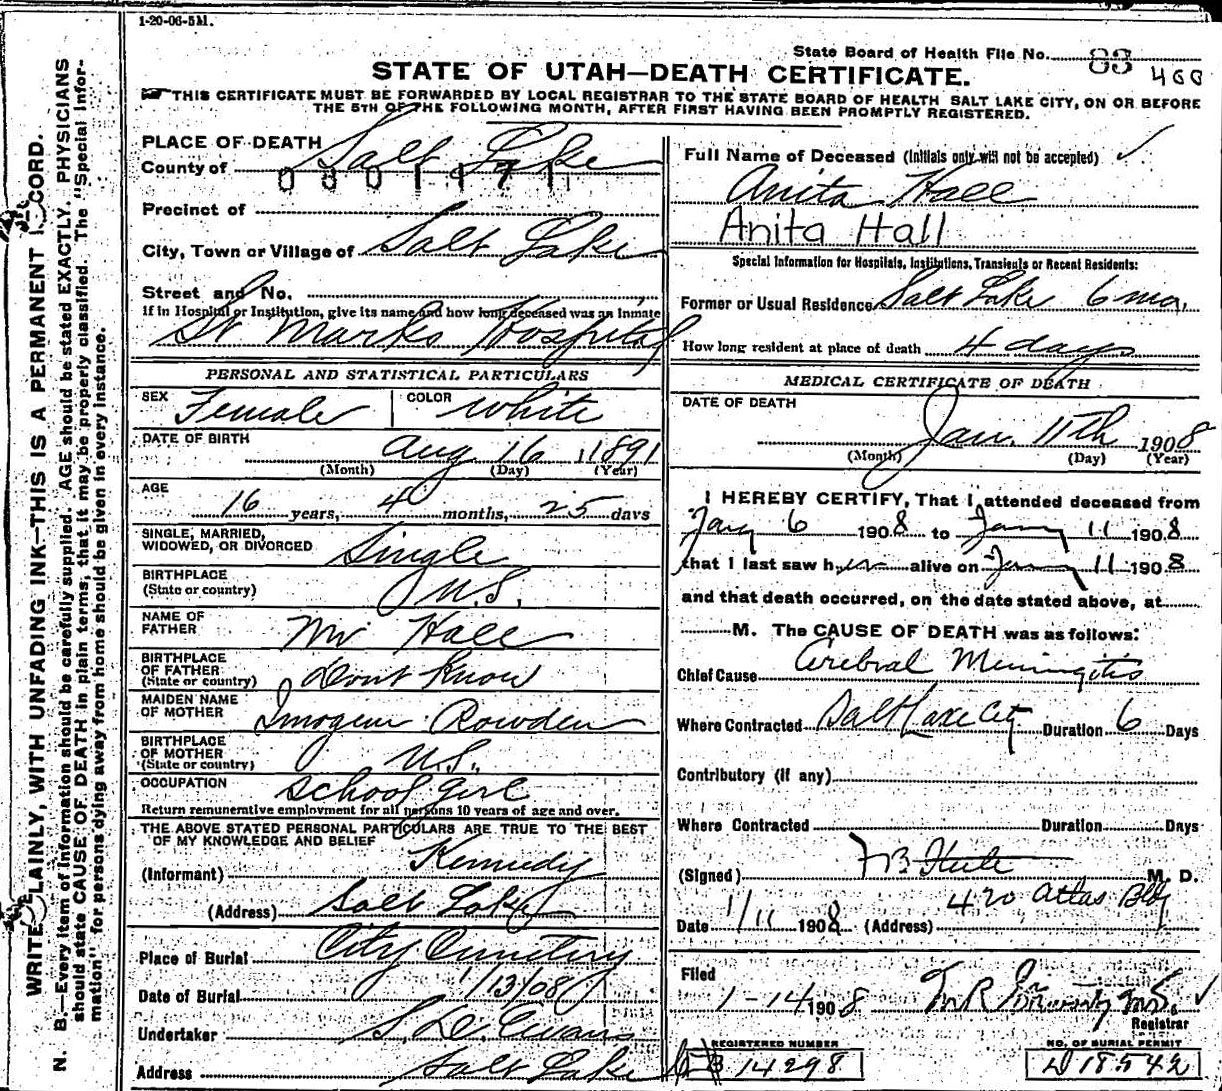 1-20-06-5M.
State Board of Health File No. 83 400
STATE OF UTAH—DEATH CERTIFICATE.
THIS CERTIFICATE MUST BE FORWARDED BY LOCAL REGISTRAR TO THE STATE BOARD OF HEALTH SALT LAKE CITY, ON OR BEFORE
THE 5TH OF THE FOLLOWING MONTH, AFTER FIRST HAVING BEEN PROMPTLY REGISTERED.
WRITE PLAINLY, WITH UNFADING INK—THIS IS A PERMANENT RECORD.
N. B.—Every item of information should be carefully supplied. AGE should be stated EXACTLY. PHYSICIANS
should state CAUSE OF DEATH in plain terms, that it may be properly classified. The "Special Infor-
mation" for persons dying away from home should be given in every instance.
PLACE OF DEATH
County of Salt Lake
Precinct of
City, Town or Village of Salt Lake
Street and No.
If in Hospital or Institution, give its name and how long deceased was an inmate
St Marks Hospital
PERSONAL AND STATISTICAL PARTICULARS
SEX Female COLOR White
DATE OF BIRTH Aug 16 1891
(Month) (Day) (Year)
AGE 16 years, 4 months, 25 days
SINGLE, MARRIED,
WIDOWED, OR DIVORCED Single
BIRTHPLACE
(State or country) U.S.
NAME OF
FATHER Mr Hall
BIRTHPLACE
OF FATHER
(State or country) Dont Know
MAIDEN NAME
OF MOTHER Imogene Rowden
BIRTHPLACE
OF MOTHER
(State or country) U.S.
OCCUPATION School girl
Return remunerative employment for all persons 10 years of age and over.
THE ABOVE STATED PERSONAL PARTICULARS ARE TRUE TO THE BEST
OF MY KNOWLEDGE AND BELIEF
(Informant) Kennedy
(Address) Salt Lake
Place of Burial City Cemetery
Date of Burial 1/13/08
Undertaker S. D. Evans
Address Salt Lake
Full Name of Deceased (Initials only will not be accepted)
Anita Hall
Anita Hall
Special Information for Hospitals, Institutions, Transients or Recent Residents:
Former or Usual Residence Salt Lake 6 mo.
How long resident at place of death 4 days
MEDICAL CERTIFICATE OF DEATH
DATE OF DEATH
Jan. 11th 1908
(Month) (Day) (Year)
I HEREBY CERTIFY, That I attended deceased from
Jany 6 1908 to Jany 11 1908
that I last saw her alive on Jany 11 1908
and that death occurred, on the date stated above, at
M. The CAUSE OF DEATH was as follows:
Chief Cause Cerebral Meningitis
Where Contracted Salt Lake City Duration 6 Days
Contributory (if any)
Where Contracted Duration Days
(Signed) M. D.
Date 1/11 1908 (Address) 420 Atlas Bldg
Filed
1-14 1908
Registrar
REGISTERED NUMBER
B 14298
NO. OF BURIAL PERMIT
D 18542